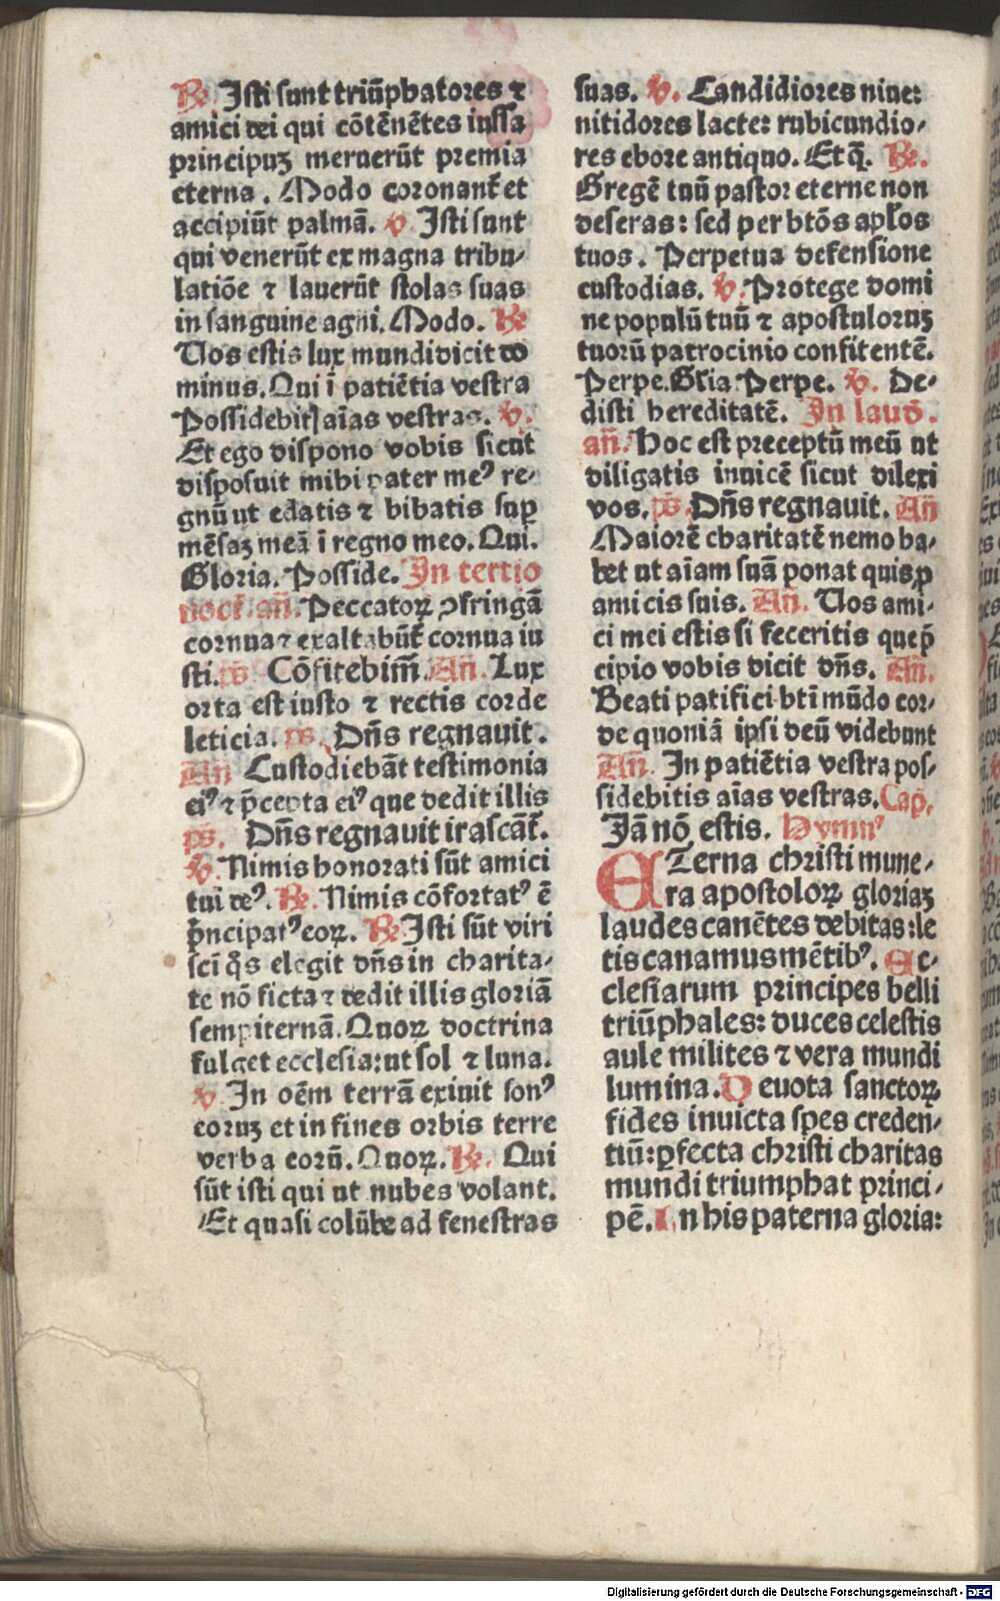 ℟ Isti sunt triūphatores ⁊
amici dei qui cōtēnētes iussa
principuꝫ meruerūt premia
eterna. Modo coronant̄ et
accipiūt palmā. ℣ Isti sunt
qui venerūt ex magna tribu⸗
latiōe ⁊ lauerūt stolas suas
in sanguine agni. Modo. ℟
Vos estis lux mundi dicit do
minus. Qui ī patiētia vestra
Possidebitꝭ aīas vestras. ℣.
Et ego dispono vobis sicut
disposuit mihi pater meꝰ re⸗
gnū ut edatis ⁊ bibatis suꝑ
mēsaꝫ meā ī regno meo. Qui.
Gloria. Posside. In tertio
noct̄. an̄. Peccatoꝝ ꝯfringā
cornua ⁊ exaltabūt̄ cornua iu
sti. ps̄ Cōfitebim̄. An̄. Lux
orta est iusto ⁊ rectis corde
leticia. ps̄. Dn̄s regnauit.
An̄ Custodiebāt testimonia
eiꝰ ⁊ p̄cepta eiꝰ que dedit illis
ps̄. Dn̄s regnauit irascāt̄.
℣. Nimis honorati sūt amici
tui deꝰ. ℟. Nimis cōfortatꝰ ē
p̄ncipatꝰ eoꝝ. ℟ Isti sūt viri
sci̅ q̄s elegit dn̄s in charita⸗
te nō ficta ⁊ dedit illis gloriā
sempiternā. Quoꝝ doctrina
fulget ecclesia: ut sol ⁊ luna.
℣. In oēm terrā exiuit sonꝰ
eoruꝫ et in fines orbis terre
verba eorū. Quoꝝ. ℟. Qui
sūt isti qui ut nubes volant.
Et quasi colūbe ad fenestras
suas. ℣. Candidiores niue:
nitidores lacte: rubicundio⸗
res ebore antiquo. Et q̄. ℟.
Gregē tuū pastor eterne non
deseras: sed per btōs apl̄os
tuos. Perpetua defensione
custodias. ℣. Protege domi
ne populū tuū ⁊ apostuloruꝫ
tuorū patrocinio confitentē.
Perpe. Glīa. Perpe. ℣. De⸗
disti hereditatē. In laud̄.
an̄. Hoc est preceptū meū ut
diligatis inuicē sicut dilexi
vos. ps̄. Dn̄s regnauit. An̄
Maiorē charitatē nemo ha⸗
bet ut aīam suā ponat quis ꝓ
amicis suis. An̄. Vos ami⸗
ci mei estis si feceritis que p̄
cipio vobis dicit dn̄s. An̄.
Beati patifici btī mūdo cor⸗
de quoniā ipsi deū videbunt
An̄. In patiētia vestra pos⸗
sidebitis aīas vestras. Cap̄.
Iā nō estis. Hymnꝰ
ETerna christi mune⸗
ra apostoloꝝ gloriaꝫ
laudes canētes debitas: le
tis canamus mētibꝰ. Ec⸗
clesiarum principes belli
triūphales: duces celestis
aule milites ⁊ vera mundi
lumina. Deuota sanctoꝝ
fides inuicta spes creden⸗
tiū: ꝑfecta christi charitas
mundi triumphat princi⸗
pē. In his paterna gloria:
Digitalisierung gefördert durch die Deutsche Forschungsgemeinschaft - DFG